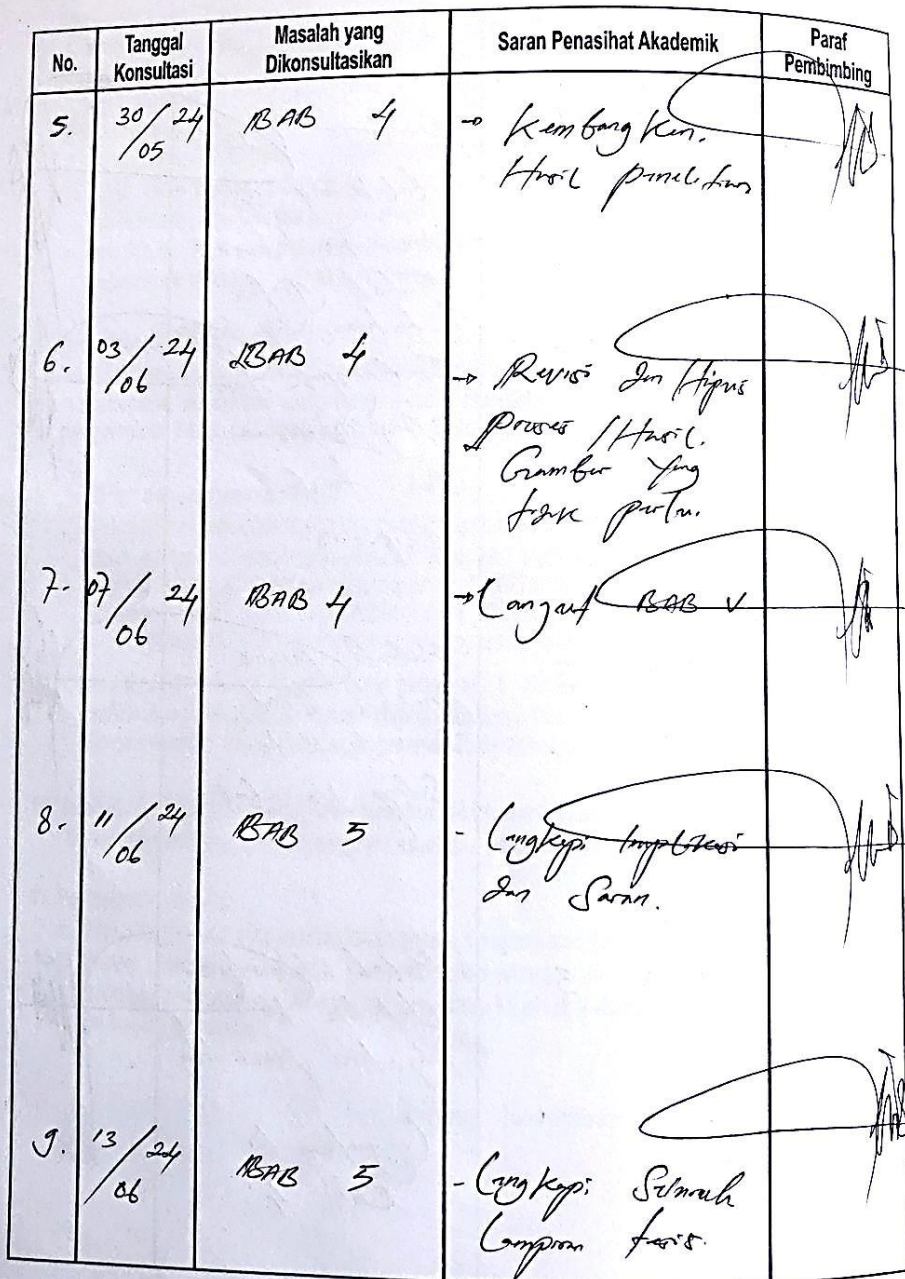 No. Tanggal Konsultasi Masalah yang Dikonsultasikan Saran Penasihat Akademik Paraf Pembimbing
5. 30/05 24 BAB 4 → Kembangkan.
Hasil penelitian
6. 03/06 24 BAB 4 → Revisi dan Hapus
proses / Hasil.
Gambar yang
tidak perlu.
7. 07/06 24 BAB 4 → Lanjut BAB V
8. 11/06 24 BAB 5 - Lengkapi Implikasi
dan Saran.
9. 13/06 24 BAB 5 - Lengkapi Semua
Lampiran tesis.